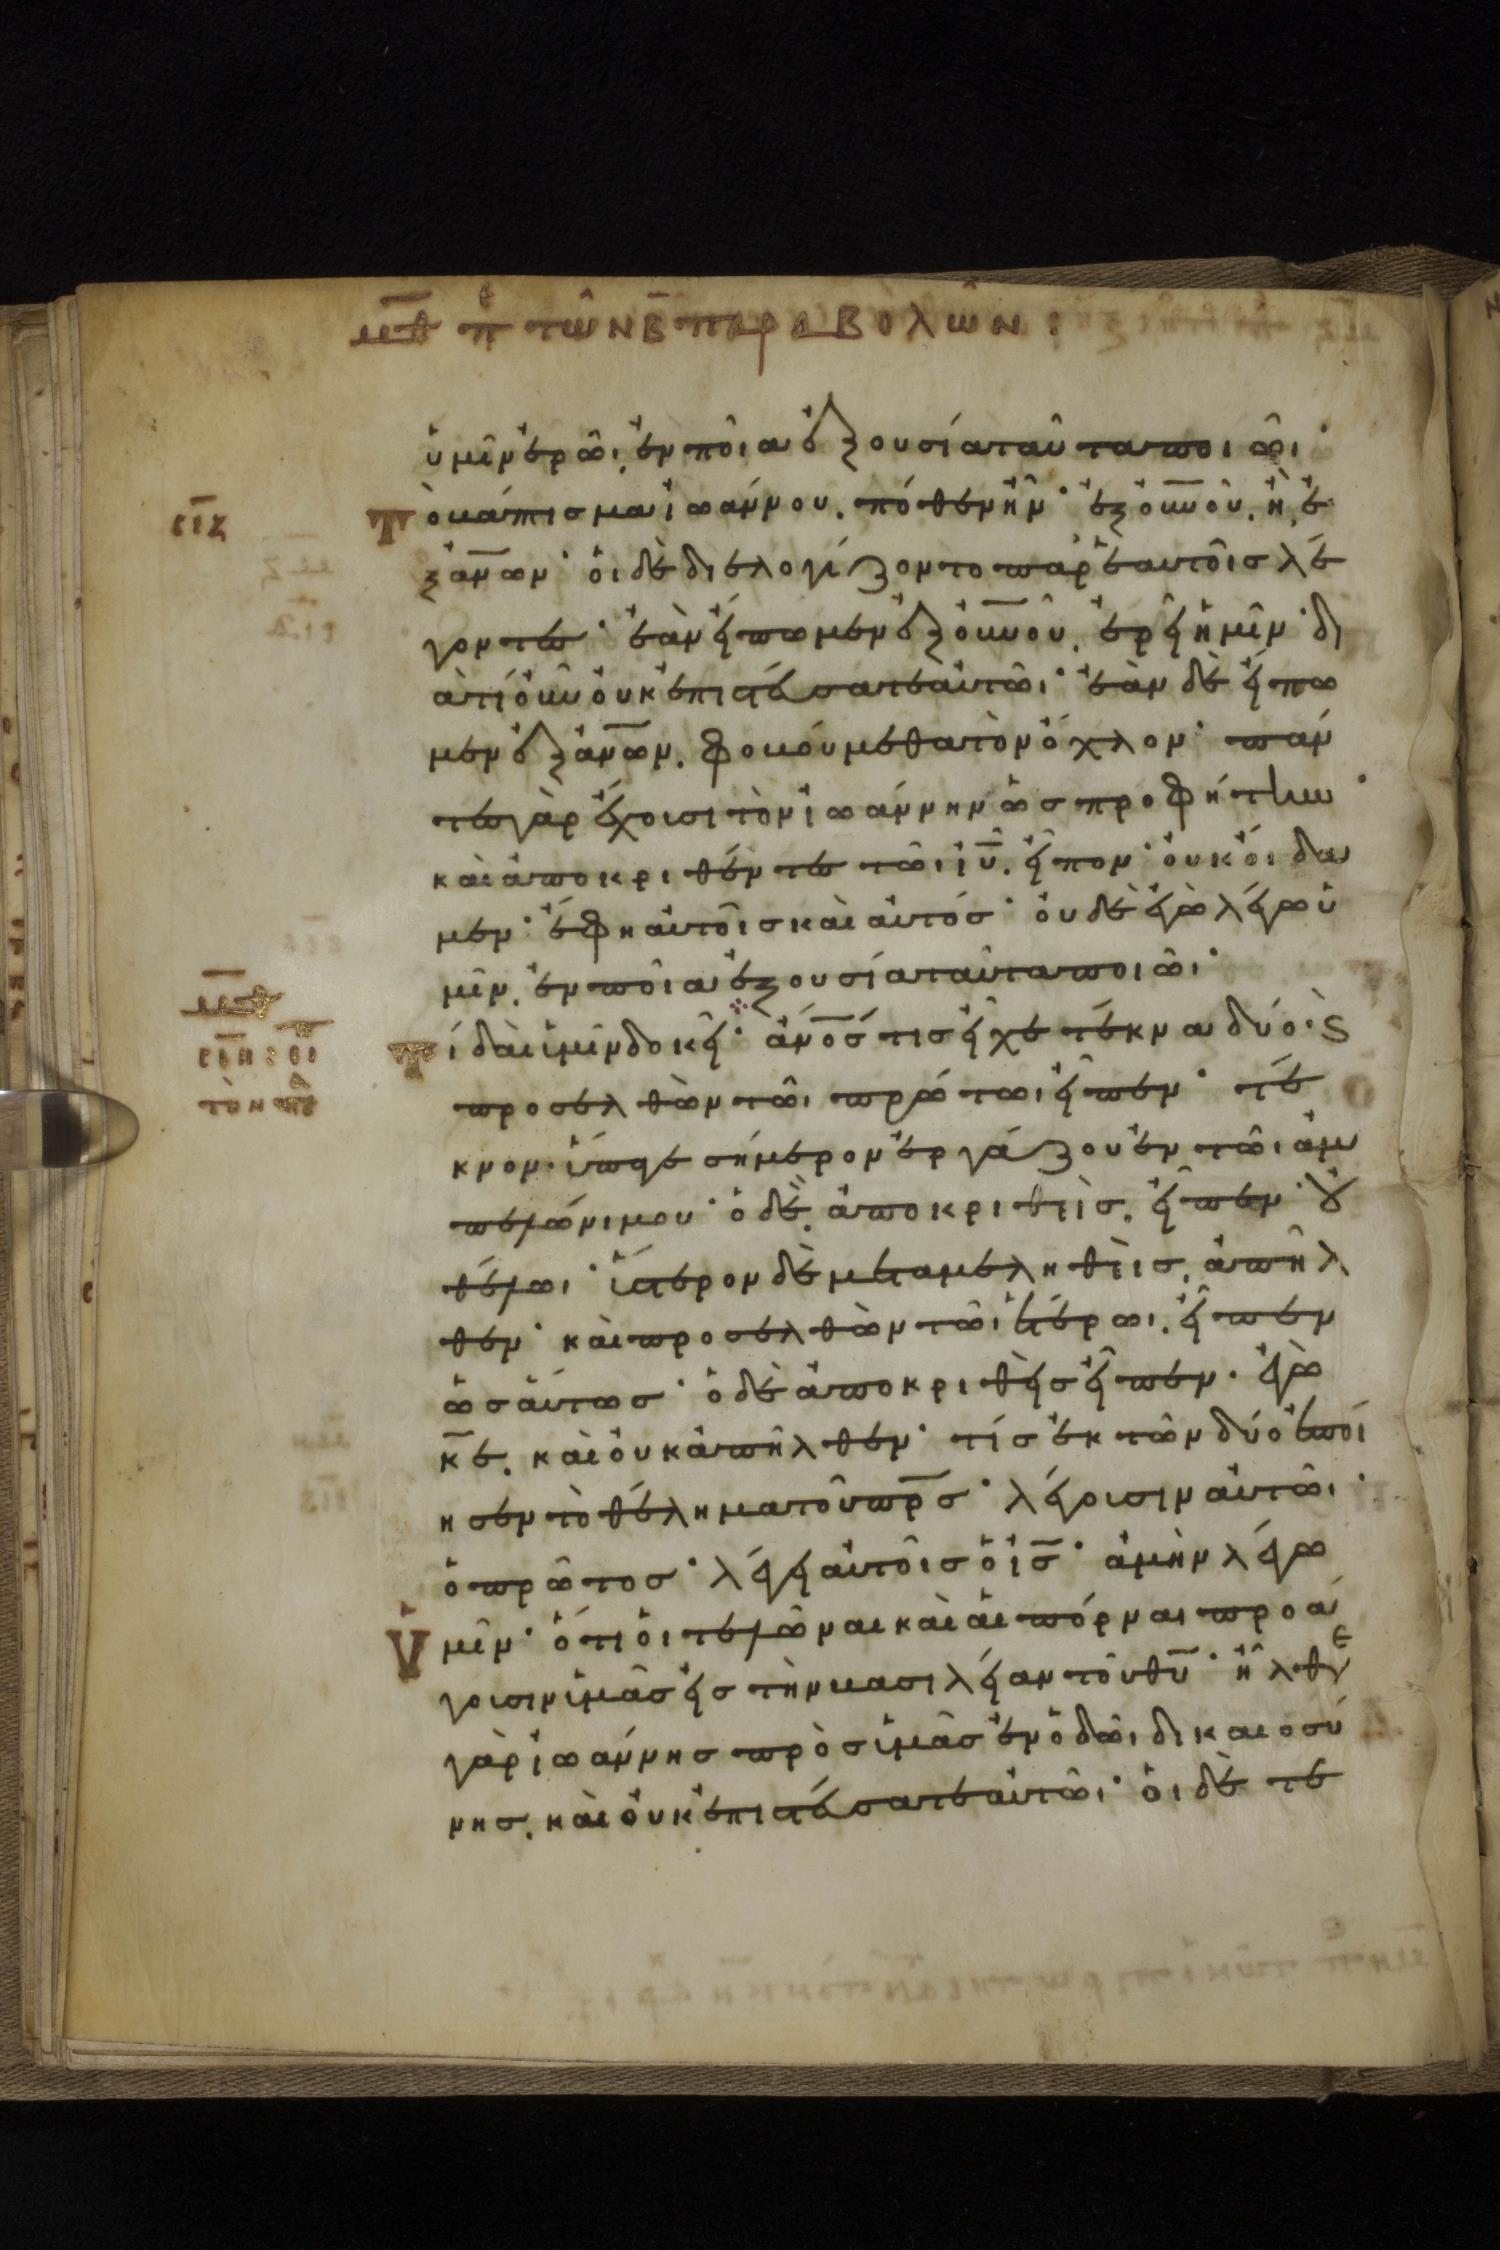 μθ πε τῶν β παραβολῶν:
ὑμῖν ἐρῶι, ἐν ποίαι ἐξουσίαι ταῦτα ποιῶι·
Τὸ βάπτισμα ἰωάννου. πόθεν ἦν· ἐξ οὐνοῦ. ἢ ἐ
ξ ἀνων· οἱ δὲ διελογίζοντο παρ' ἑαυτοῖς λέ
γοντες· ἐὰν εἴπωμεν ἐξ οὐνοῦ. ἐρεῖ ἡμῖν· δι
ατί οὖν οὐκ ἐπιστεύσατε αὐτῶι· ἐὰν δὲ εἴπω
μεν ἐξ ἀνων. φοβούμεθα τὸν ὄχλον· πάν
τες γὰρ ἔχουσι τὸν ἰωάννην ὡς προφήτην·
καὶ ἀποκριθέντες τῶι ιυ. εἶπον· οὐκ οἴδα
μεν· ἔφη αὐτοῖς καὶ αὐτός· οὐδὲ ἐγὼ λέγω ὑ
μῖν. ἐν ποίαι ἐξουσίαι ταῦτα ποιῶι·
Τί δαὶ ὑμῖν δοκεῖ· ἀνος τις εἶχε τέκνα δύο· ϛ
προσελθὼν τῶι πρώτωι εἶπεν· τέ
κνον· ὕπαγε σήμερον ἐργάζου ἐν τῶι ἀμ
πελῶνι μου· ὁ δὲ. ἀποκριθεὶς. εἶπεν· οὐ
θέλωι· ὕστερον δὲ μεταμεληθεὶς. ἀπῆλ
θεν· καὶ προσελθὼν τῶι ἑτέρωι. εἶπεν
ὡσαύτως· ὁ δὲ ἀποκριθεὶς εἶπεν· ἐγὼ
κε. καὶ οὐκ ἀπῆλθεν· τίς ἐκ τῶν δύο ἐποί
ησεν τὸ θέλημα τοῦ πρς· λέγουσιν αὐτῶι·
ὁ πρῶτος· λέγει αὐτοῖς ὁ ις· ἀμὴν λέγω
Ὑμῖν· ὅτι οἱ τελῶναι καὶ αἱ πόρναι προά
γουσιν ὑμᾶς εἰς τὴν βασιλείαν τοῦ θυ· ἦλθε
γὰρ ἰωάννης πρὸς ὑμᾶς ἐν ὁδῶι δικαιοσύ
νης. καὶ οὐκ ἐπιστεύσατε αὐτῶι· οἱ δὲ τε
σιζ
μθ
σιη: ιο